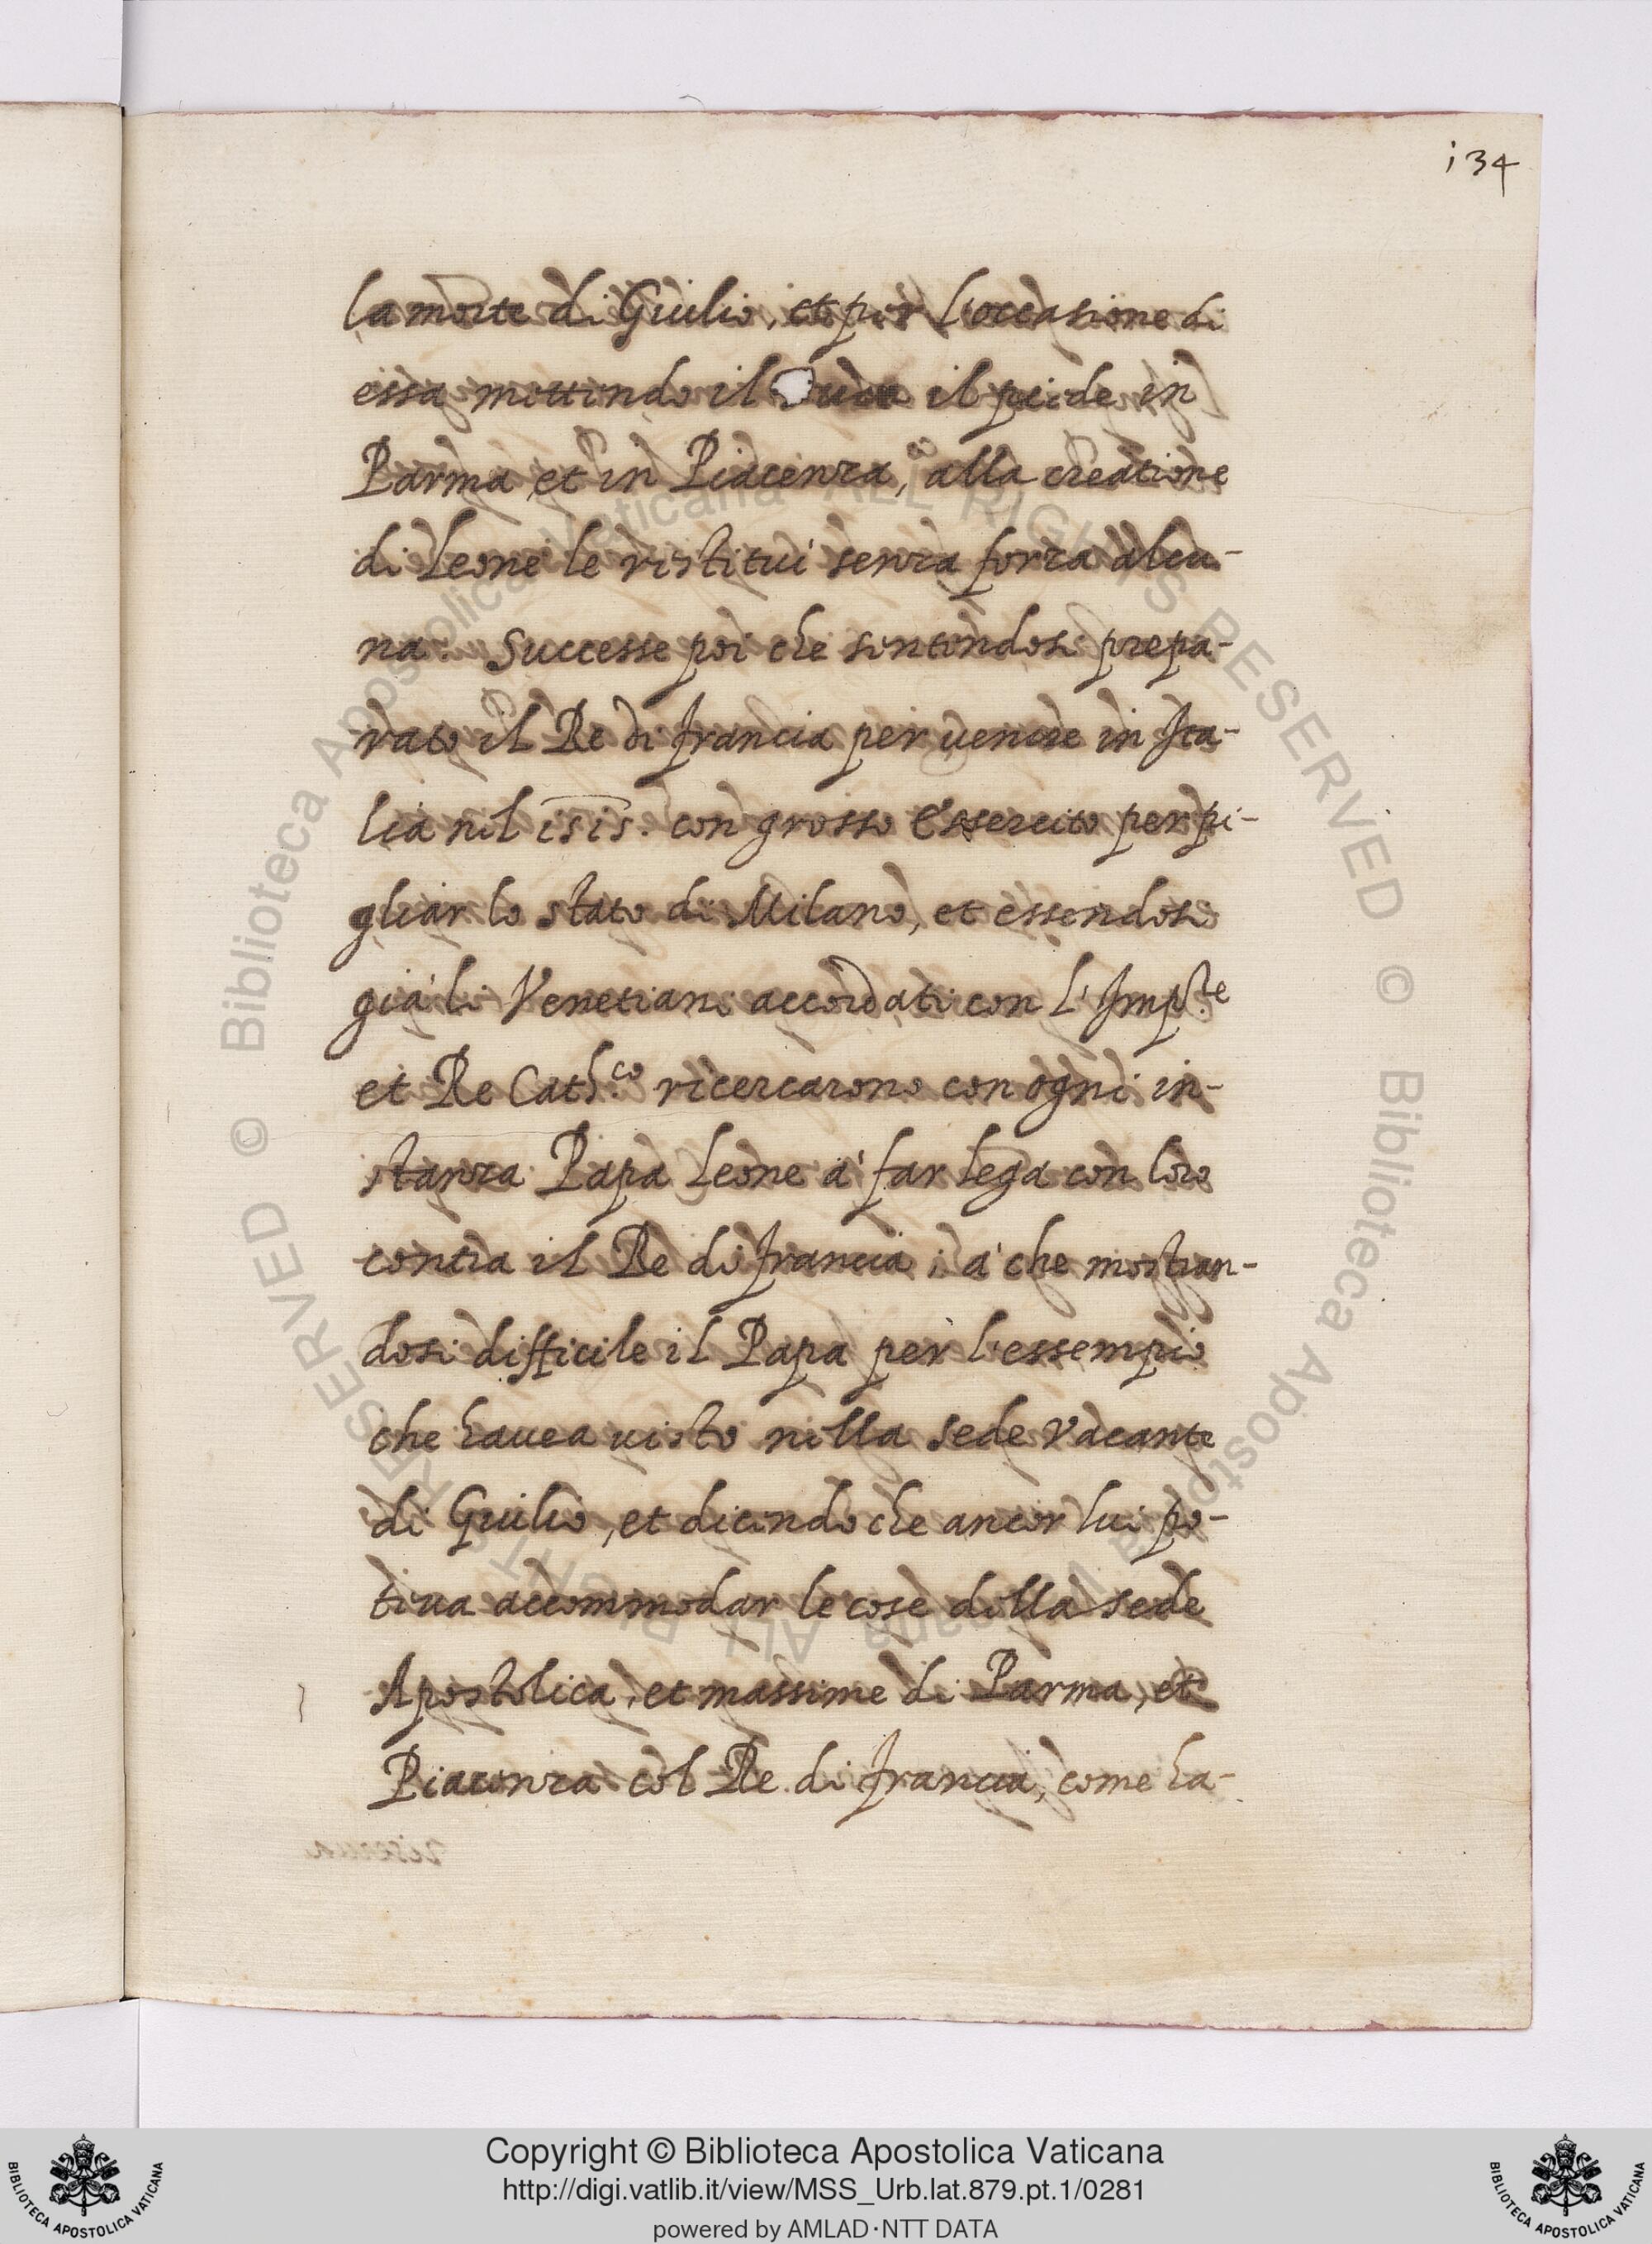 i34
la morte di Giulio, et per l'occasione di
essa mettendo il Duca il piede in
Parma, et in Piacenza, alla creatione
di Leone le restitui senza forza alcu-
na. Successe poi che sentendosi prepa-
rato il Re di francia per venire in Ita-
lia nel isis. con grosso Essercito per pi-
gliar lo stato di Milano, et essendosi
già li Venetiani accordati con l'Imp.re
et Re Cath.co ricercarono con ogni in-
stanza Papa Leone a' far lega con loro
contra il Re di francia; a' che mostran-
dosi difficile il Papa per l'essempio
che hauea uisto nella Sede Vacante
di Giulio, et dicendo che ancor lui po-
teua accommodar le cose della sede
Apostolica, et massime di Parma, et
Piacenza col Re di francia, come ha-
© Biblioteca Apostolica Vaticana ALL RIGHTS RESERVED © Biblioteca Apostolica Vaticana ALL RIGHTS RESERVED
Copyright © Biblioteca Apostolica Vaticana
http://digi.vatlib.it/view/MSS_Urb.lat.879.pt.1/0281
powered by AMLAD·NTT DATA
BIBLIOTECA APOSTOLICA VATICANA
BIBLIOTECA APOSTOLICA VATICANA